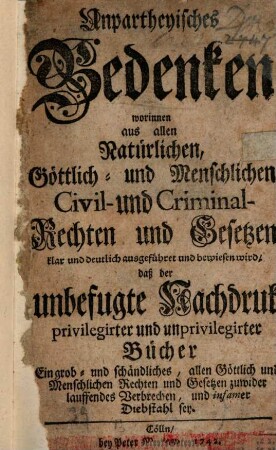 Unpartheyisches
Bedenken
worinnen
aus allen
Natürlichen,
Göttlich- und Menschlichen
Civil- und Criminal-
Rechten und Gesetzen
klar und deutlich ausgeführet und bewiesen wird/
daß der
unbefugte Nachdruk
privilegirter und unprivilegirter
Bücher
Ein grob- und schändliches, allen Göttlich und
Menschlichen Rechten und Gesetzen zuwider
lauffendes Verbrechen, und infamer
Diebstahl sey.
Cölln/
bey Peter 1742.